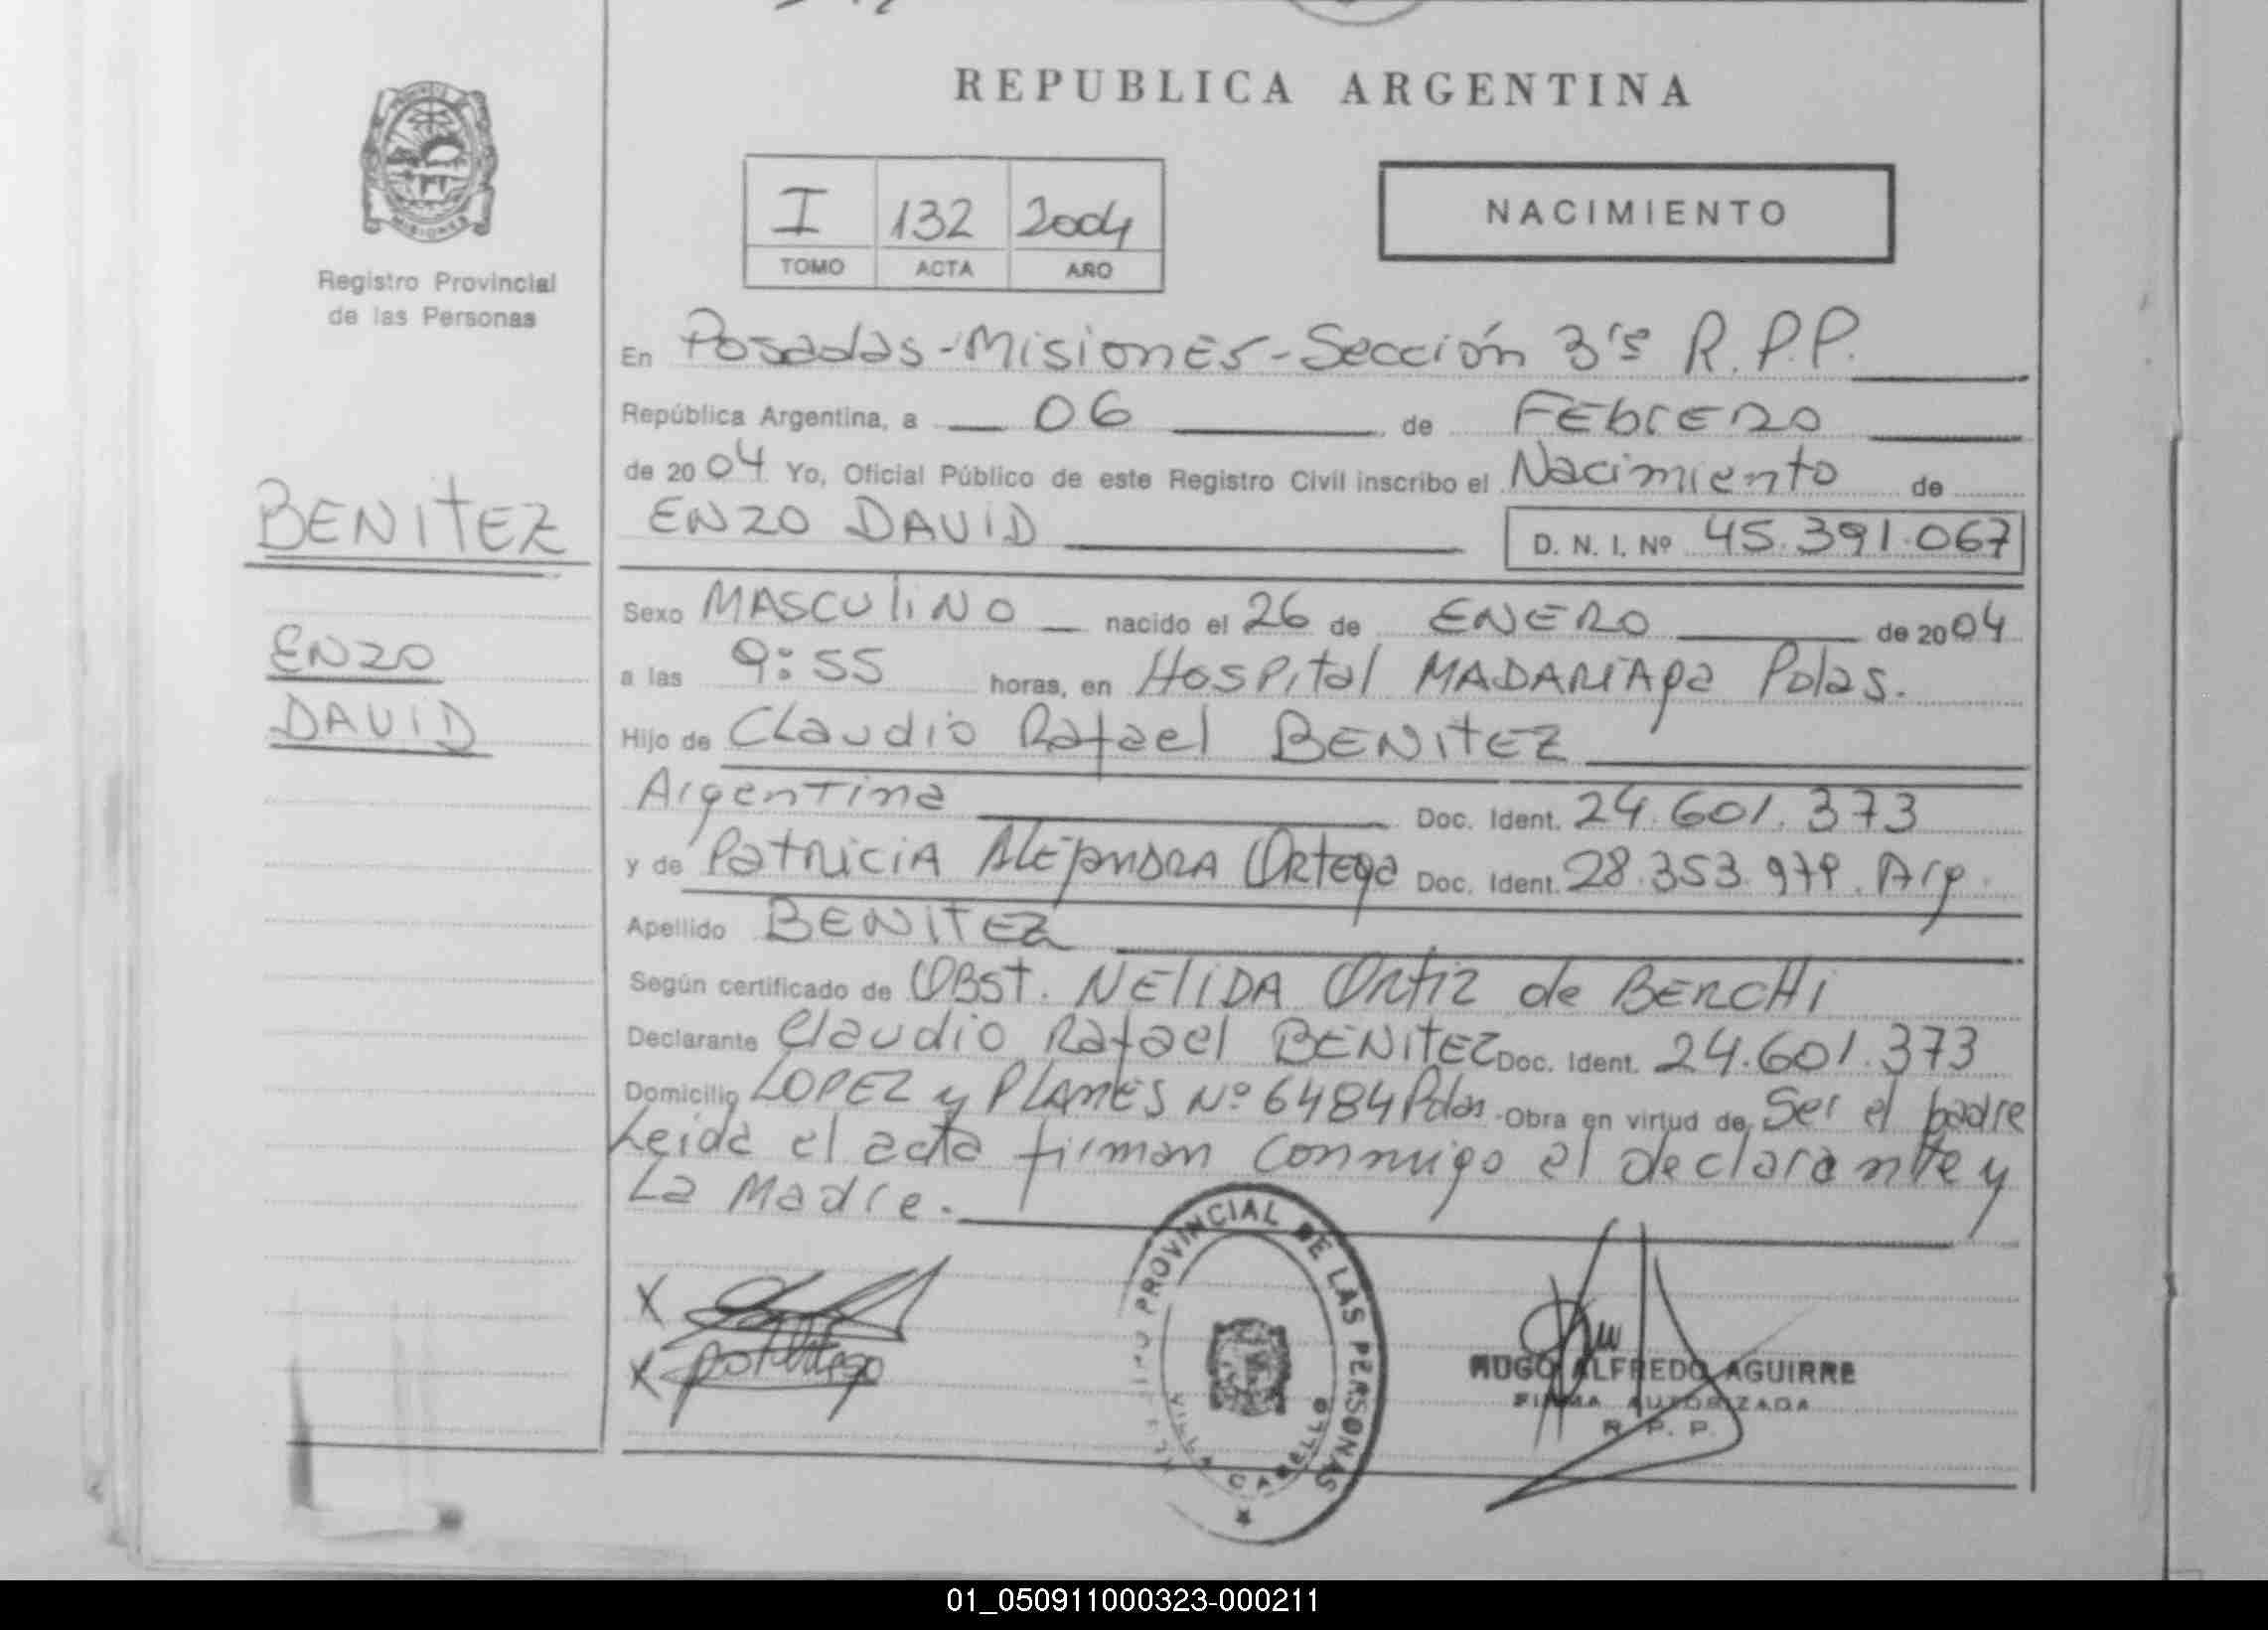 REPUBLICA ARGENTINA
PROVINCIA DE
MISIONES
Registro Provincial
de las Personas
I 132 2004
TOMO ACTA AÑO
NACIMIENTO
En Posadas-Misiones-Sección 3ra R.P.P.
República Argentina, a 06 de Febrero
de 2004 Yo, Oficial Público de este Registro Civil inscribo el Nacimiento de
BENITEZ
ENZO DAVID D. N. I. Nº 45.391.067
Sexo MASCULINO nacido el 26 de ENERO de 2004
ENZO
a las 9:55 horas, en Hospital MADARIAga Pdas.
DAVID
Hijo de Claudio Rafael BENITEZ
Argentina Doc. Ident. 24.601.373
y de Patricia Alejandra Ortega Doc. Ident. 28.353.979. Arg.
Apellido BENITEZ
Según certificado de Obst. NELIDA Ortiz de BERCHI
Declarante Claudio Rafael BENITEZ Doc. Ident. 24.601.373
Domicilio LOPEZ y PLANES Nº 6484 Pdas. Obra en virtud de Ser el padre
Leida el acta firman conmigo el declarante y
La Madre.
REGISTRO PROVINCIAL DE LAS PERSONAS
VILLA CABELLO
X
X
HUGO ALFREDO AGUIRRE
FIRMA AUTORIZADA
R. P. P.
01_050911000323-000211